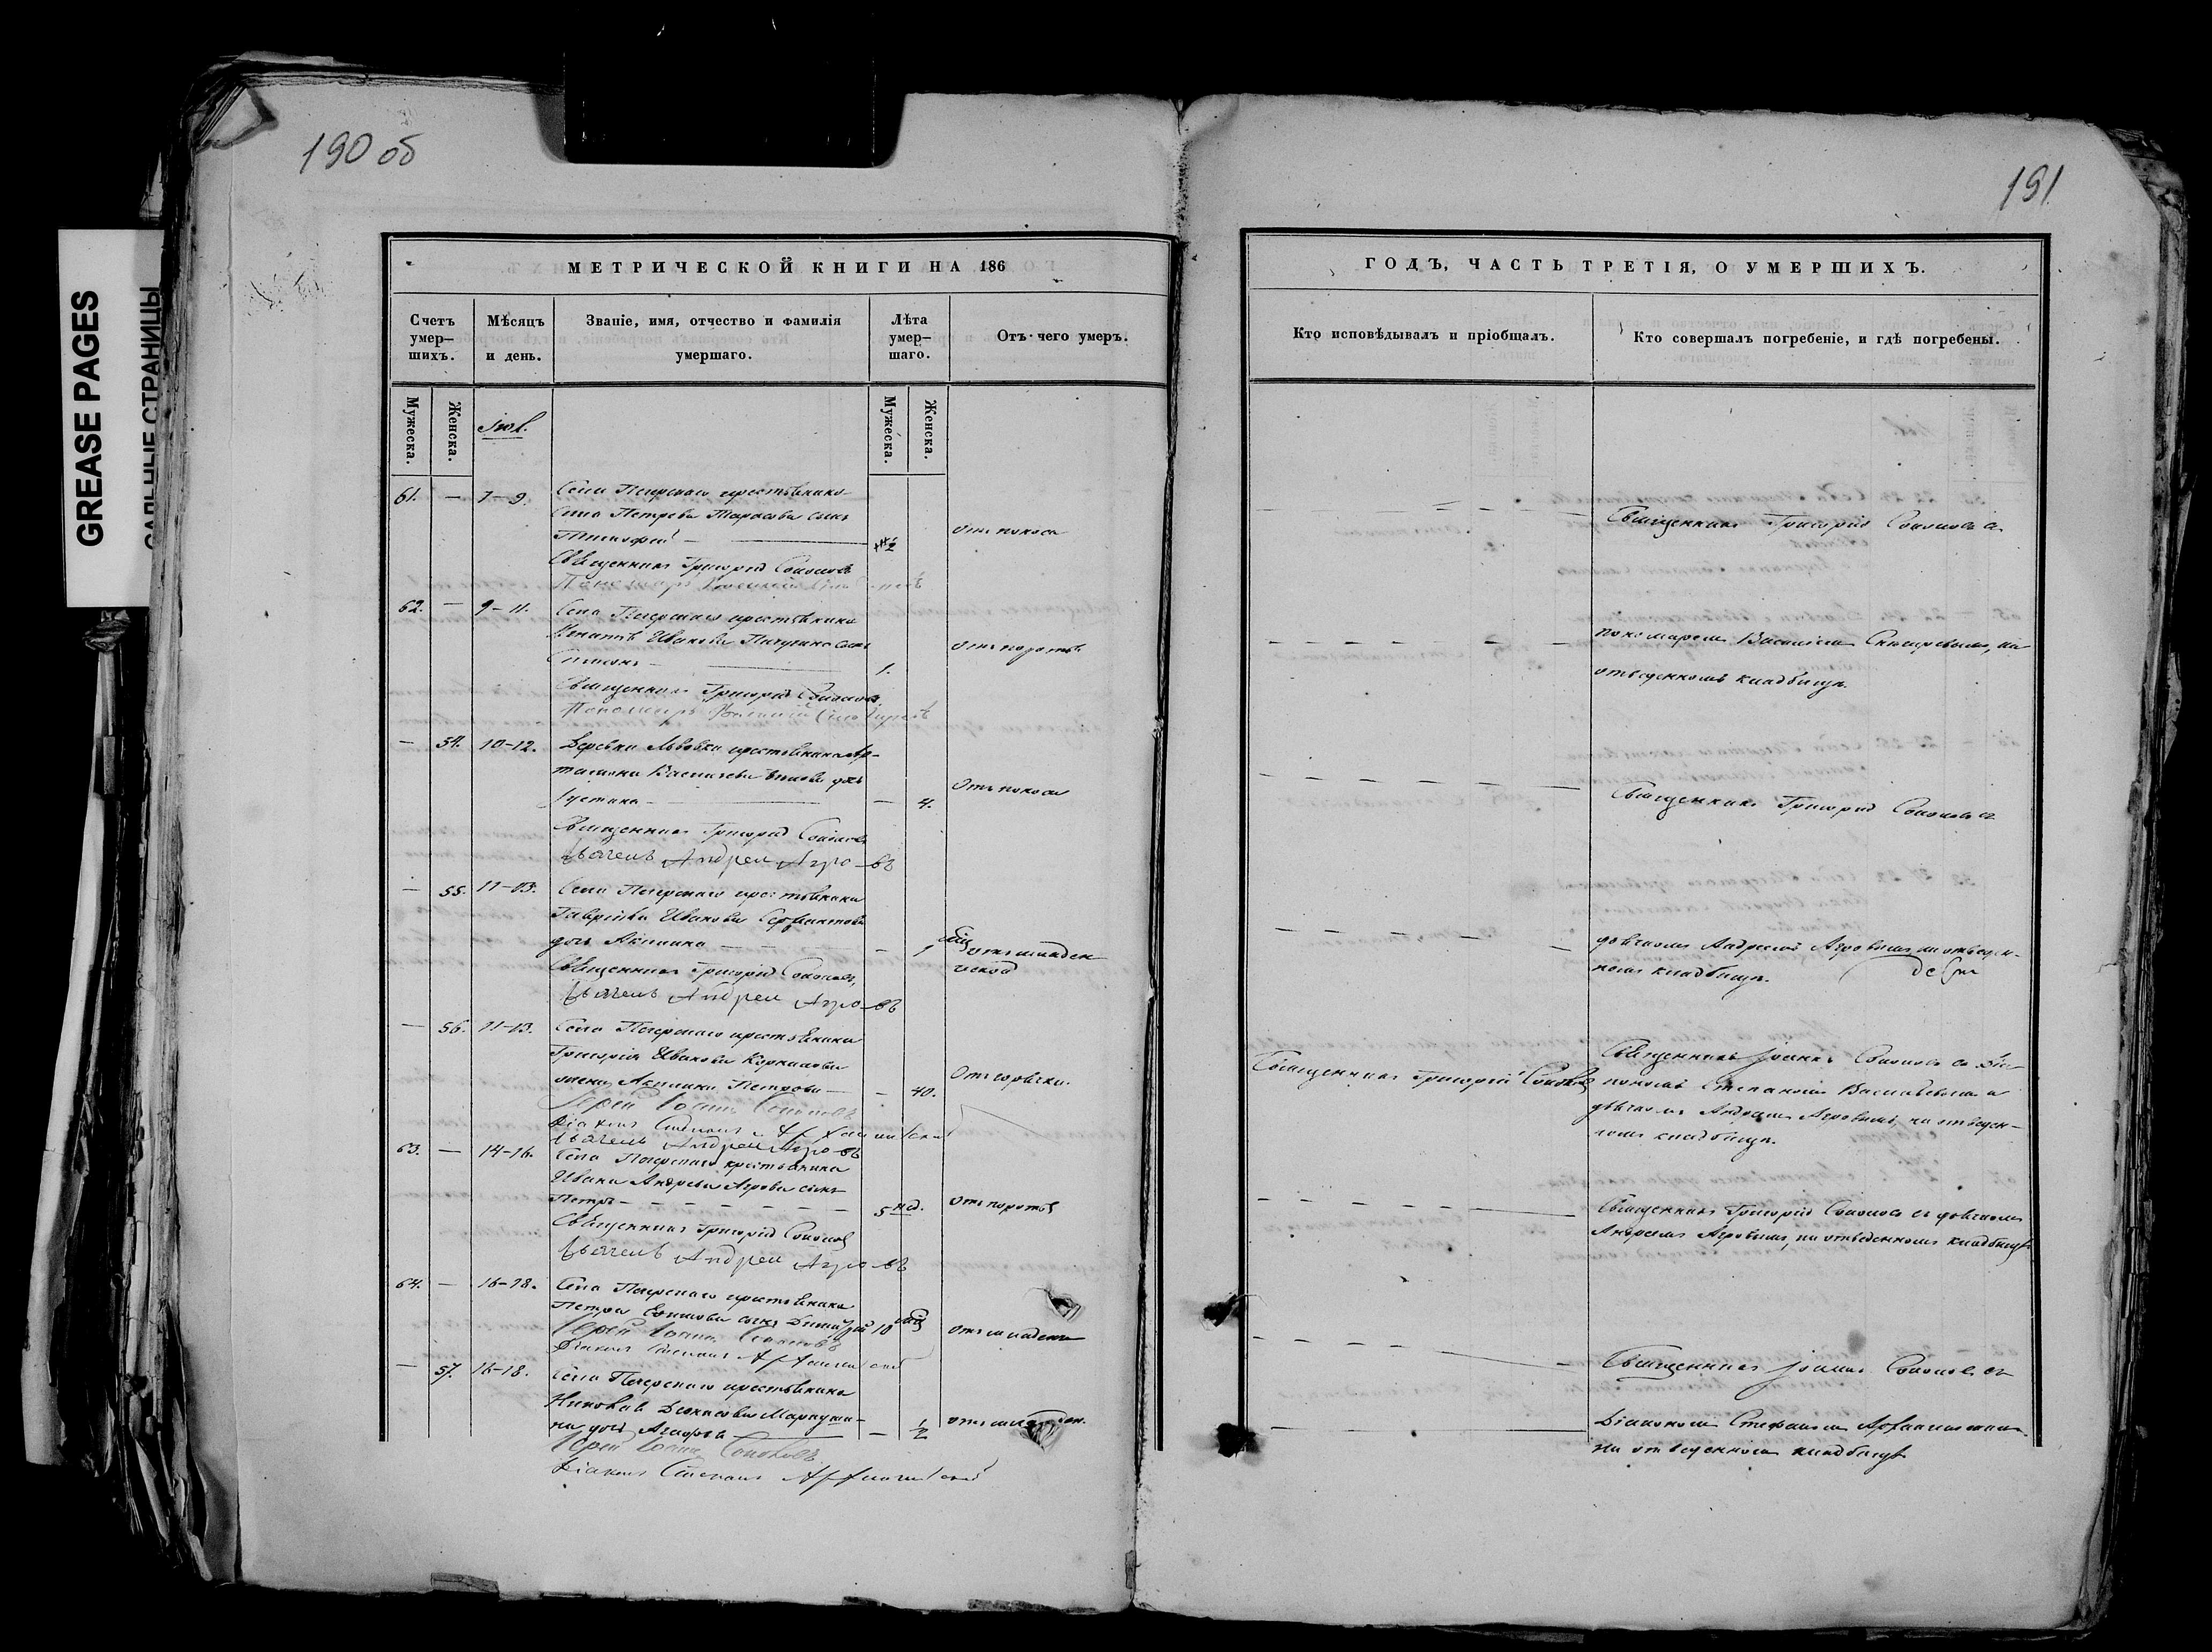 190 об
191
GREASE PAGES
САЛЬНЫЕ СТРАНИЦЫ
МЕТРИЧЕСКОЙ КНИГИ НА 186
Счетъ умер-
шихъ.
Мѣсяцъ
и день.
Званіе, имя, отчество и фамилія
умершаго.
Лѣта
умер-
шаго.
Отъ чего умеръ.
Мужеска.
Женска.
Іюл.
Мужеска.
Женска.
61. — 7-9. Села Печерскаго крестьянина
Петрова Тарасова сынъ
Тимофей — 2 отъ поноса
Священникъ Григорій Соколовъ
62. — 9-11. Села Печерскаго крестьянина
Иванова Пичугина сынъ
1. отъ
Священникъ Григорій Соколовъ.
Пономарь Василій
— 54. 10-12. Деревни Львовки крестьянина Ар-
тамона Васильева дочь
Іустина — — 4. Отъ поноса
Священникъ Григорій Соколовъ
Дьячекъ Андрей Агровъ
— 55. 11-13. Села Печерскаго крестьянина
Гаврила Иванова
дочь Акилина — — отъ младен
ческой
Священникъ Григорій Соколовъ,
Дьячекъ Андрей Агровъ
— 56. 11-13. Села Печерскаго крестьянина
Григорія Иванова Корнилова
жена Акилина Петрова — — 40. Отъ горячки.
Іерей Іоаннъ Соколовъ
Діаконъ Стефанъ
Дьячекъ Андрей Агровъ
63. — 14-16. Села Печерскаго крестьянина
Ивана Андреева Агрова сынъ
Петръ — 5 нед. отъ
Священникъ Григорій Соколовъ
Дьячекъ Андрей Агровъ
64. — 16-18. Села Печерскаго крестьянина
Петра сынъ Димитрій 10 отъ младен
Іерей Іоаннъ Соколовъ
Діаконъ Стефанъ
— 57. 16-18. Села Печерскаго крестьянина
Денисова
на дочь — — 1/2 отъ младен.
Іерей Іоаннъ Соколовъ.
Діаконъ Стефанъ
ГОДЪ, ЧАСТЬ ТРЕТІЯ, О УМЕРШИХЪ.
Кто исповѣдывалъ и пріобщалъ.
Кто совершалъ погребеніе, и гдѣ погребены.
Священникъ Григорій Соколовъ съ
пономаремъ Василіемъ на
отведенномъ кладбищѣ.
Священникъ Григорій Соколовъ съ
дьячкомъ Андреемъ Агровымъ на отведен-
номъ кладбищѣ.
Священникъ Григорій Соколовъ
Священникъ Іоаннъ Соколовъ съ діа-
кономъ Стефаномъ и
дьячкомъ Андреемъ Агровымъ, на отведен-
номъ кладбищѣ.
Священникъ Григорій Соколовъ съ дьячкомъ
Андреемъ Агровымъ, на отведенномъ кладбищѣ
Священникъ Іоаннъ Соколовъ съ
Діакономъ Стефаномъ
на отведенномъ кладбищѣ